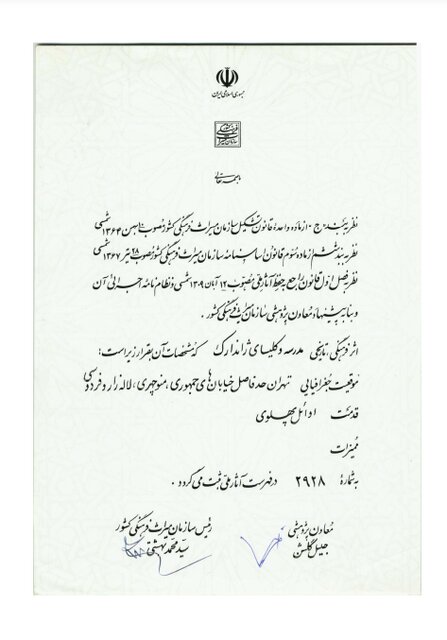 جمهوری اسلامی ایران
باسمه تعالی
نظر به بند ج ۱۰ از ماده واحدهٔ قانون تشکیل سازمان میراث فرهنگی کشور مصوب بهمن ۱۳۶۴ شمسی
نظر به بند ششم از ماده سوم قانون اساسنامه سازمان میراث فرهنگی کشور مصوب ۲۸ تیر ۱۳۶۷ شمسی
نظر به فصل اول قانون راجع به حفظ آثار ملی مصوب ۱۲ آبان ۱۳۰۹ شمسی و نظامنامه اجرائی آن
و بنا به پیشنهاد معاون پژوهشی سازمان میراث فرهنگی کشور .
اثر فرهنگی ، تاریخی مدرسه و کلیسای ژاندارک که مشخصات آن بقرار زیر است :
موقعیت جغرافیایی تهران حد فاصل خیابان های جمهوری ، منوچهری ، لاله زار و فردوسی
قدمت اوائل پهلوی
ممیزات
به شمارهٔ ۲۹۲۸ در فهرست آثار ملی ثبت می گردد .
معاون پژوهشی رئیس سازمان میراث فرهنگی کشور
جلیل گلشن سید محمد بهشتی